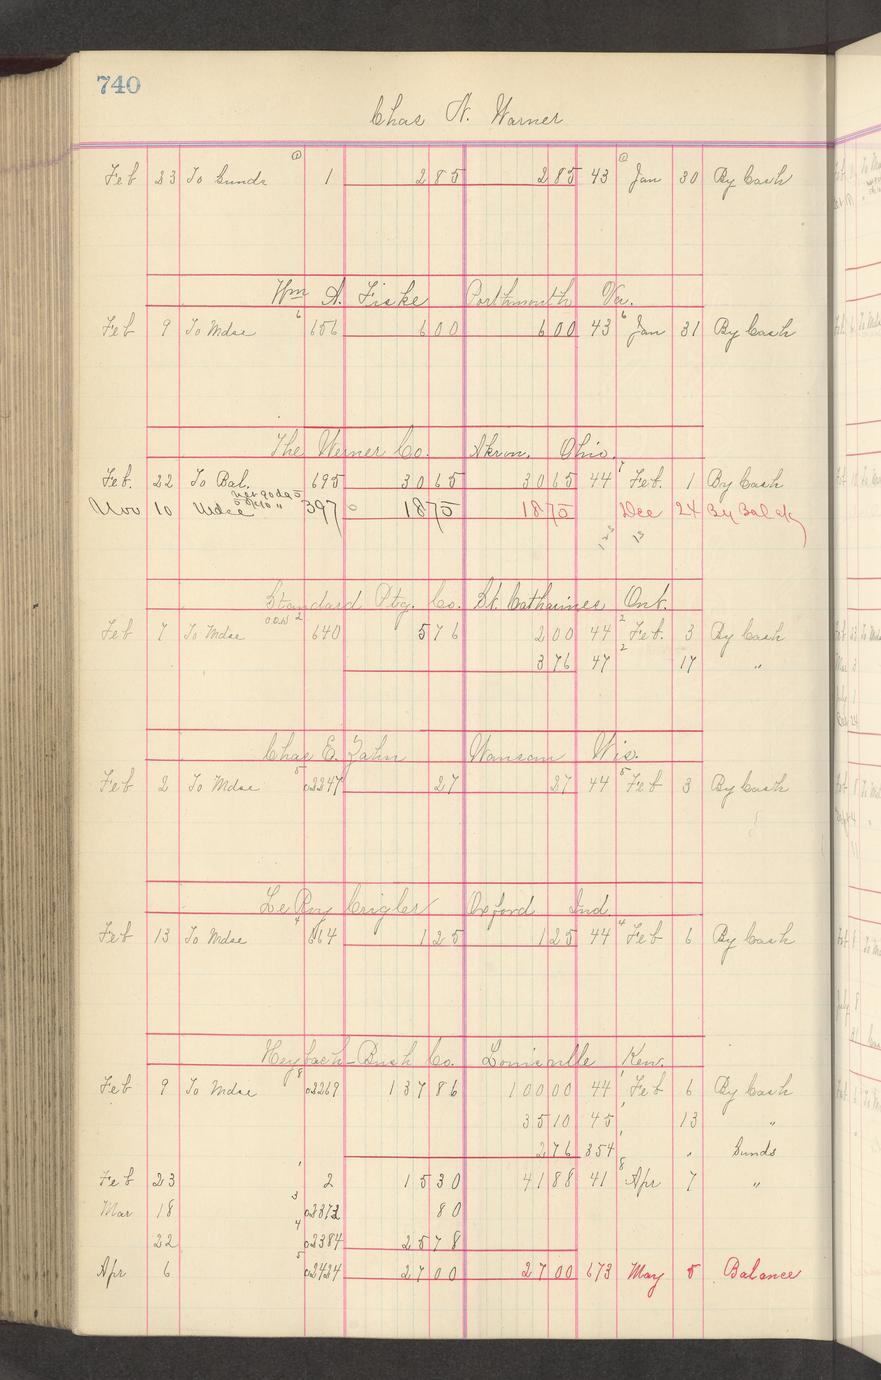 740
Chas N. Warner
Feb 23 To Sunds ① 1 285 285 43 ① Jan 30 By Cash
Wm A. Fiske Portsmouth Va.
Feb 9 To Mdse 6 656 600 600 43 6 Jan 31 By Cash
The Werner Co. Akron, Ohio.
Feb. 22 To Bal. 695 3065 3065 44 7 Feb. 1 By Cash
Nov 10 Mdse 397 1875 1875 Dec 24 By Bal
Standard Ptg. Co. St. Catharines Ont.
Feb 7 To Mdse 2 640 576 200 44 2 Feb. 3 By Cash
376 47 2 17 "
Chas E. Zahn Wausau Wis.
Feb 2 To Mdse 5 02247 27 27 44 5 Feb 3 By Cash
LeRoy Crigler Oxford Ind.
Feb 13 To Mdse 4 664 125 125 44 4 Feb 6 By Cash
Heybach-Bush Co. Louisville Ken.
Feb 9 To Mdse 8 02269 13786 10000 44 1 Feb 6 By Cash
3510 45 1 13 "
276 354 1 " Sunds
Feb 23 1 2 1530 4188 41 8 Apr 7 "
Mar 18 3 02372 80
22 4 02384 2578
Apr 6 5 02424 2700 2700 673 May 5 Balance